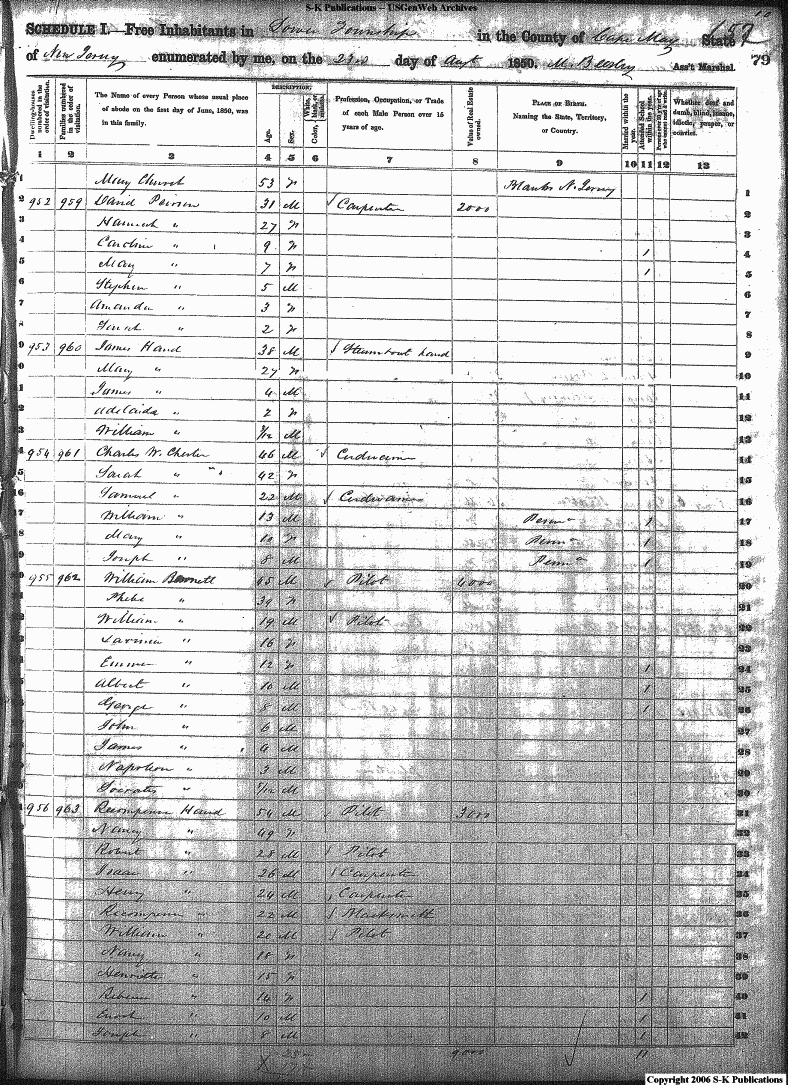 S-K Publications -- USGenWeb Archives
SCHEDULE I.—Free Inhabitants in Lower Township in the County of Cape May State
of New Jersey enumerated by me, on the 23rd day of Augt 1850. Ass't Marshal. 79
DESCRIPTION.
Dwelling-houses numbered in the order of visitation.
Families numbered in the order of visitation.
The Name of every Person whose usual place of abode on the first day of June, 1850, was in this family.
Age.
Sex.
Color, White, black, or mulatto.
Profession, Occupation, or Trade of each Male Person over 15 years of age.
Value of Real Estate owned.
PLACE OF BIRTH. Naming the State, Territory, or Country.
Married within the year.
Attended School within the year.
Whether deaf and dumb, blind, insane, idiotic, pauper, or convict.
1 2 3 4 5 6 7 8 9 10 11 12 13
1 Mary Church 53 Blanks N. Jersey 1
2 952 959 David 31 M Carpenter 2000 2
3 Hannah " 27 3
4 Caroline " 9 1 4
5 Mary " 7 1 5
6 Stephen " 5 M 6
7 Amanda " 3 7
8 Sarah " 2 8
9 953 960 James Hand 38 M Steamboat hand 9
Mary " 27 10
James " 4 M 11
Adelaida " 2 12
William " M 13
954 961 Charles W. Chester 46 M Cordwainer 14
Sarah " " 42 15
Samuel " 22 M Cordwainer 16
William " 13 M Penna 1 17
Mary " Penna 1 18
Joseph " 8 M Penna 1 19
955 962 William Bennett 45 M Pilot 4000 20
Phebe " 39 21
William " 19 M Pilot 22
" 16
Emma " 12 1 24
Albert " 10 M 1 25
George " 8 M 1 26
John " 6 M 27
James " 4 M 28
Napoleon " 3 M 29
Socrates " M 30
956 963 Recompence Hand 54 M Pilot 3000 31
Nancy " 49 32
Robert " 28 M Pilot 33
Isaac " 26 M Carpenter 34
Henry " 24 M Carpenter 35
Recompence " 22 M Blacksmith 36
William " 20 M Pilot 37
Nancy " 18 38
Henrietta " 15 39
Rebecca " 14 1 40
Enoch " 10 M 1 41
Joseph " 8 M 1 42
9000 11
Copyright 2006 S-K Publications